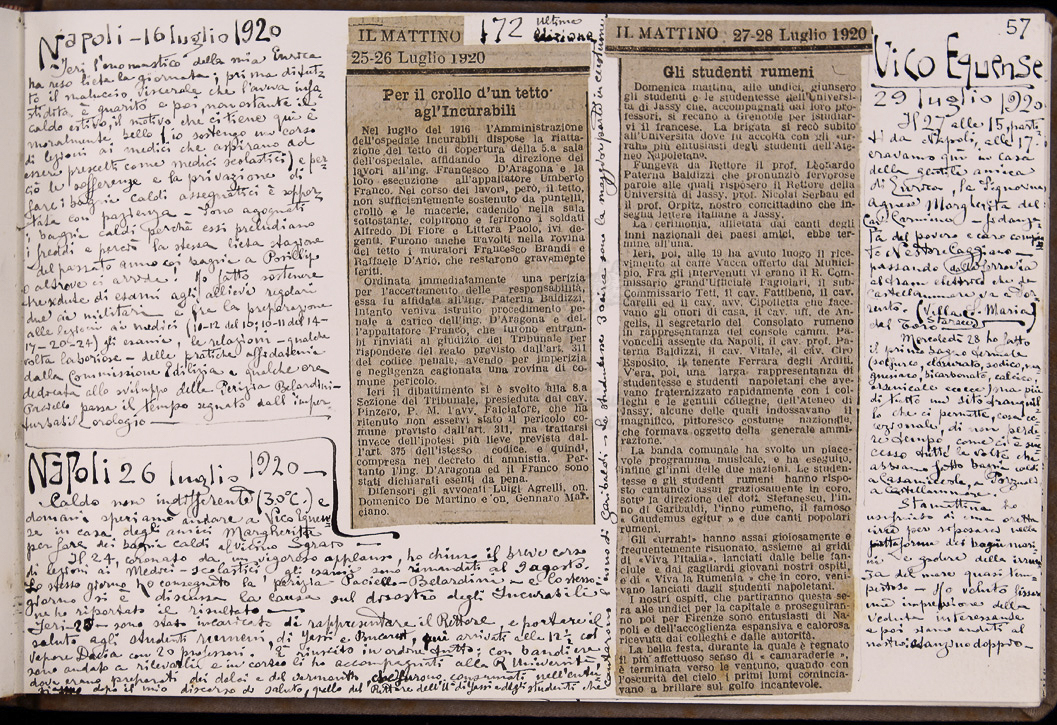 57
Napoli - 16 luglio 1920
Ieri l'onomastico della mia Enrica
ha reso lieta la giornata; prima di tut-
to il maluccio viscerale che l'aveva infa-
stidita è guarito e poi, nonostante il
caldo estivo, il motivo che ci tiene qui è
moralmente bello (io sostengo un corso
di lezioni ai medici che aspirano ad
essere prescelti come medici scolastici) e per-
ciò le sofferenze e la privazione di
fare i bagni caldi assegnatici è soppor-
tata con pazienza - Sono agognati
i bagni caldi perchè essi preludiano
i freddi e perciò la stessa lieta stagione
del passato anno coi bagni a Posillipo
o altrove ci arride! Ho fatto sostenere
tre sedute di esami agli allievi regolari
due ai militari e fra la preparazione
alle lezioni ai medici (10-12 del 10; 10-11 del 14-
17-20-24) gli esami, le relazioni - qualche
volta laboriose - delle pratiche affidatemi
dalla Commissione Edilizia e qualche ora
dedicata allo sviluppo della Perizia Belardini-
Paciello passa il tempo segnato dall'imper
turbati orologio -
Napoli 26 luglio 1920 -
Caldo non indifferente (30°C.) e
domani speriamo andare a Vico Equen
se in casa degli amici Margherita
per fare dei bagni caldi al vicino Sgrato -
Il 24, coronato da vigoroso applauso, ho chiuso il breve corso
di lezioni ai Medici-Scolastici gli esami sono rimandati al 9 agosto.
Lo stesso giorno ho consegnato la perizia Paciello-Belardini - e lo stesso
giorno si è discussa la causa sul disastro degli Incurabili e
ne ho riportato il risultato -
Ieri - 25 - sono stato incaricato di rappresentare il Rettore, e portare il
saluto agli studenti rumeni, di Yassi e Bucarest, qui arrivati alle 12½ col
vapore Dacia con 20 professori. È riuscito in ordine tutto; con bandiera
sono andato a rilevarli e in corteo li ho accompagnati alla R. Università
dove erano preparati dei dolci e del vermouth, che furono consumati nell'entu-
siasmo dopo il mio discorso di saluto, quello del Rettore dell'Un. di Jassi e degli studenti che
cantarono inno di Garibaldi - le studentesse
IL MATTINO
172
Ultima
edizione
25-26 Luglio 1920
Per il crollo d'un tetto
agl'Incurabili
Nel luglio del 1916 l'Amministrazione
dell'ospedale Incurabili dispose la riatta-
zione del tetto di copertura della 5.a sala
dell'ospedale, affidando la direzione dei
lavori all'ing. Francesco D'Aragona e la
loro esecuzione all'appaltatore Umberto
Franco. Nel corso dei lavori, però, il tetto,
non sufficientemente sostenuto da puntelli,
crollò e le macerie, cadendo nella sala
sottostante, colpirono e ferirono i soldati
Alfredo Di Fiore e Littera Paolo, ivi de-
genti. Furono anche travolti nella rovina
del tetto i muratori Francesco Brandi e
Raffaele D'Ario, che restarono gravemente
feriti.
Ordinata immediatamente una perizia
per l'accertamento delle responsabilità,
essa fu affidata all'ing. Paterna Baldizzi,
intanto veniva istruito procedimento pe-
nale a carico dell'ing. D'Aragona e del-
l'appaltatore Franco, che furono entram-
bi rinviati al giudizio del Tribunale per
rispondere del reato previsto dall'art. 311
del codice penale, avendo per imperizia
e negligenza cagionata una rovina di co-
mune pericolo.
Ieri il dibattimento si è svolto alla 8.a
Sezione del Tribunale, presieduta dal cav.
Pinzero, P. M. l'avv. Falciatore, che ha
ritenuto non esservi stato il pericolo co-
mune previsto dall'art. 311, ma trattarsi
invece dell'ipotesi più lieve prevista dal-
l'art. 375 dell'istesso codice, e quindi,
compresa nel decreto di amnistia. Per-
tanto l'ing. D'Aragona ed il Franco sono
stati dichiarati esenti da pena.
Difensori gli avvocati Luigi Agrelli, on.
Domenico De Martino e on. Gennaro Mar-
ciano.
IL MATTINO 27-28 Luglio 1920
Gli studenti rumeni
Domenica mattina, alle undici, giunsero
gli studenti e le studentesse dell'Universi-
tà di Jassy che, accompagnati dai loro pro-
fessori, si recano a Grenoble per istudiar-
vi il francese. La brigata si recò subito
all'Università dove fu accolta con gli «ur-
rah» più entusiasti degli studenti dell'Ate-
neo Napoletano.
Fungeva da Rettore il prof. Leonardo
Paterna Baldizzi che pronunziò fervorose
parole alle quali risposero il Rettore della
Università di Jassy, prof. Nicolai Serbau ed
il prof. Ortitz, nostro concittadino che in-
segna lettere italiane a Jassy.
La cerimonia, allietata dai canti degli
inni nazionali dei paesi amici, ebbe ter-
mine all'una.
Ieri, poi, alle 19 ha avuto luogo il rice-
vimento al caffè Vacca offerto dal Munici-
pio. Fra gli intervenuti vi erano il R. Com-
missario grand'Ufficiale Fagiolari, il sub-
Commissario Toti, il cav. Fattibene, il cav.
Carelli ed il cav. avv. Cipolletta che face-
vano gli onori di casa, il cav. uff. de An-
gelis, il segretario del Consolato rumeno
in rappresentanza del console comm. Pa-
voncelli assente da Napoli, il cav. prof. Pa-
terna Baldizzi, il cav. Vitale, il cav. Ciro
Esposito, il tenente Ferrara degli Arditi.
V'era, poi, una larga rappresentanza di
studentesse e studenti napoletani che ave-
vano fraternizzato rapidamente con i col-
leghi e le gentili colleghe, dell'Ateneo di
Jassy, alcune delle quali indossavano il
magnifico, pittoresco costume nazionale,
che formava oggetto della generale ammi-
razione.
La banda comunale ha svolto un piace-
vole programma musicale, e ha eseguito,
infine gl'inni delle due nazioni. Le studen-
tesse e gli studenti rumeni hanno rispo-
sto cantando assai graziosamente in coro,
sotto la direzione del dott. Stefanescu, l'in-
no di Garibaldi, l'inno rumeno, il famoso
« Gaudemus egitur » e due canti popolari
rumeni.
Gli «urrah!» hanno assai gioiosamente e
frequentemente risuonato, assieme ai gridi
di « Viva l'Italia », lanciati dalle belle fan-
ciulle e dai gagliardi giovani nostri ospiti,
e di « Viva la Rumenia » che in coro, veni-
vano lanciati dagli studenti napoletani.
I nostri ospiti, che partiranno questa se-
ra alle undici per la capitale e proseguiran-
no poi per Firenze sono entusiasti di Na-
poli e dell'accoglienza espansiva e calorosa
ricevuta dai colleghi e dalle autorità.
La bella festa, durante la quale è regnato
il più affettuoso senso di « camaraderie »,
è terminata verso le ventuno, quando con
l'oscurità del cielo i primi lumi comincia-
vano a brillare sul golfo incantevole.
Vico Equense
29 luglio 1920
Il 27 alle 15, parti-
ti da Napoli, alle 17½
eravamo qui in casa
della gentile amica
di Enrica, la Signorina
Agnese Margherita del
fidanza-
ta del povero e caro compian-
to Nestore
passando dalla ferrovia
al tram elettrico che da
Castellammare va a Sor-
rento. (Villa S. Maria)
del Toro
Mercoledì 28 ho fatto
il primo bagno termale
(solfuro, cloruro, sodico, ma-
gnesiaco, bicarbonato, calcico,
arsenicale ecc ecc) ma più
di tutto un sito tranquil-
lo che ci permette, cosa ec-
cezionale, di non perde-
re tempo come ci è suc-
cesso tutte le volte che
abbiamo fatto bagni caldi
a Casamicciola, a Pozzuoli
a Castellammare.
Stamattina ho
usufruito di una oretta
circa per riposarmi nella
piattaforma dei bagni mari-
ni e godere della
sa del mare quasi tem-
pestoso - Ho voluto fissare
una impressione della
veduta interessante
e poi siamo andati al
nostro bagno doppio -